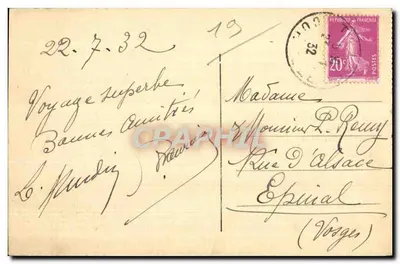 22.7.32
19
Voyage superbe
Bonnes amitiés
32
REPUBLIQUE FRANCAISE
20c
POSTES
CPAPHIL.COM
Madame
Monsieur P. Remy
Rue d'Alsace
Epinal
(Vosges)